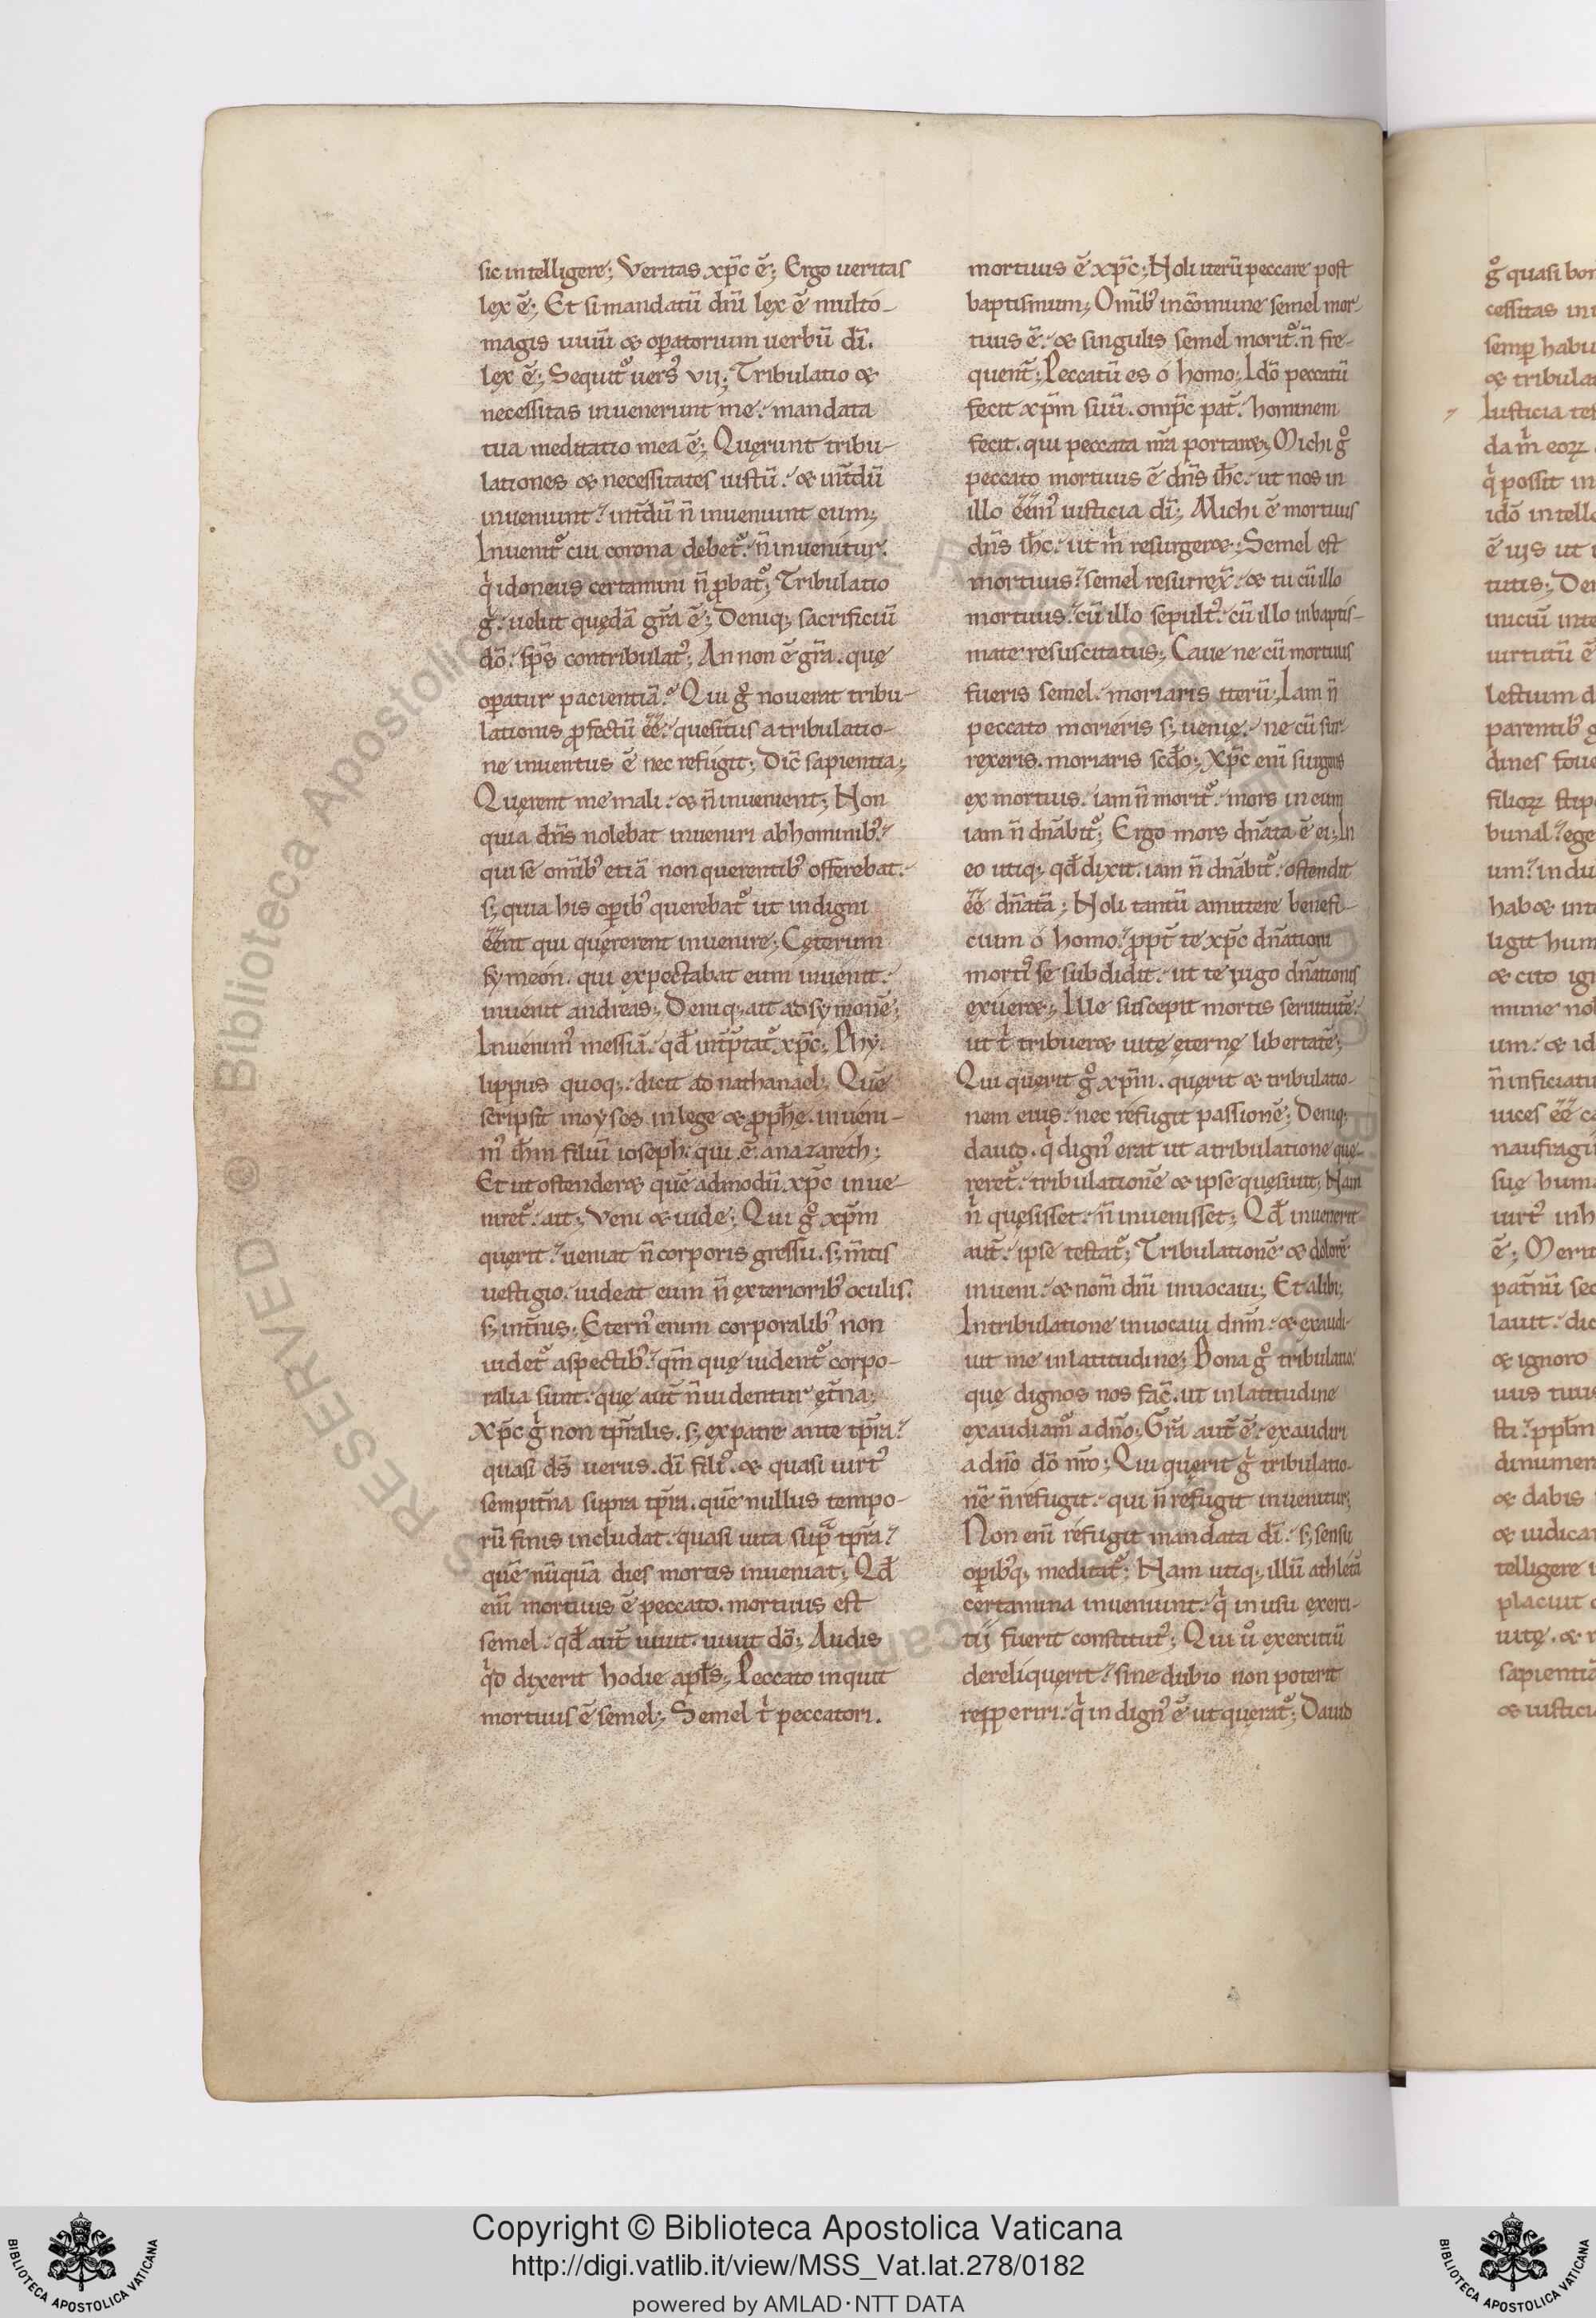 sic intelligere; Veritas xp̄c ē; Ergo ueritas
lex ē; Et si mandatū dn̄i lex ē multo
magis uiuū & oꝑatorium uerbū dī.
lex ē; Sequit᷑ uers̄ vıı; Tribulatio &
necessitas inuenerunt me. mandata
tua meditatio mea ē; Quęrunt tribu-
lationes & necessitates iustū. & int̄dū
inueniunt. int̄dū n̄ inueniunt eum;
Inuenit᷑ cui corona debet᷑. n̄ inuenitur.
qͥ idoneus certamini n̄ ꝓbat᷑; Tribulatio
gͥ. uelut quędā gr̄a ē; Deniq; sacrificiū
dō. sp̄s contribulat᷒; An non ē gr̄a. quę
oꝑatur pacientiā. Qui gͦ nouerat tribu-
lationis ꝓfectū ēē. quesitus a tribulatio-
ne inuentus ē nec refugit; Dic̄ sapientia;
Quęrent me mali. & n̄ inuenient; Non
quia dn̄s nolebat inueniri ab hominib᷒.
qui se om̄ib᷒ etiā non querentib᷒ offerebat.
s; quia his oꝑib᷒ querebat᷑ ut indigni
ēēnt qui quęrerent inuenire; Cęterum
symeon. qui expectabat eum inuenit.
inuenit andreas; Deniq; ait ad symonē;
Inuenim᷒ messiā. qđ int̄p̄tat᷑ xp̄c; Phy-
lippus quoq;. dicit ad nathanael. Quē
scripsit moyses in lege & ꝓph̄ę. inueni-
m᷒ ih̄m filiū ioseph. qui ē. a nazareth;
Et ut ostender& quē admodū xp̄c inue-
niret᷑. ait; Veni & uide; Qui gͦ xp̄m
querit. ueniat n̄ corporis gressū. s; m̄tis
uestigio. uideat eum n̄ exteriorib᷒ oculis.
s; int̄nis; Etern᷒ enim corporalib᷒ non
uidet᷑ aspectib᷒. qm̄ quę uident᷑ corpo-
ralia sunt. quę aut̄ n̄ uidentur ęt̄na;
Xp̄c gͥ non tp̄ralis. s; ex patre ante tp̄ra.
quasi ds̄ uerus. dī fili᷒. & quasi uirt᷒
sempit̄na supra tp̄ra. quē nullus tempo-
rū finis includat. quasi uita supͣ tp̄ra.
quē nūquā dies mortis inueniat; Qđ
enī mortuus ē peccato. mortuus est
semel. qđ aut̄ uiuit. uiuit dō; Audis
qͥd dixerit hodie apl̄s; Peccato inquit
mortuus ē semel; Semel tͥ peccatori.
mortuus ē xp̄c; Noli iterū peccare post
baptismum; Om̄ib᷒ in cōmune semel mor-
tuus ē. & singulis semel morit᷑. n̄ fre-
quent̄; Peccatū es o homo; Idō peccatū
fecit xp̄m suū. omp̄c pat̄. hominem
fecit. qui peccata nr̄a portar&; Michi gͦ
peccato mortuus ē dn̄s ih̄c. ut nos in
illo ēēm᷒ iusticia dī; Michi ē mortuus
dn̄s ih̄c. ut mͥ resurger&; Semel est
mortuus. semel resurrex̄. & tu cū illo
mortuus. cū illo sepult᷒. cū illo in baptis-
mate resuscitatus; Caue ne cū mortuus
fueris semel. moriaris iterū; Iam n̄
peccato morieris s; uenię. ne cū sur-
rexeris. moriaris scđo; Xp̄c enī surgens
ex mortuis. iam n̄ morit᷑. mors in eum
iam n̄ dn̄abit᷑; Ergo mors dn̄ata ē ei; In
eo utiq; qđ dixit. iam n̄ dn̄abit᷑. ostendit
ēē dn̄atā; Noli tantū amittere benefi-
cium o homo. ꝓpt̄ te xp̄c dn̄ationi
mortis se subdidit. ut te iugo dn̄ationis
exuer&; Ille suscepit mortis seruitutē.
ut tͥ tribuer& uitę ęternę libertatē;
Qui quęrit gͦ xp̄m. quęrit & tribulatio-
nem eius. nec refugit passionē; Deniq;
dauid. qͥ dign᷒ erat ut a tribulatione quę-
reret᷑. tribulationē & ipse quęsiuit; Nam
nͥ quęsisset. n̄ inuenisset; Qđ inuenerit
aut̄. ipse testat᷑; Tribulationē & dolorē
inueni. & nom̄ dn̄i inuocaui; Et alibi;
In tribulatione inuocaui dn̄m. & exaudi-
uit me in latitudine; Bona gͦ tribulatio.
quę dignos nos fac̄. ut in latitudine
exaudiam᷑ a dn̄o; Gr̄a aut̄ ē. exaudiri
a dn̄o dō nr̄o; Qui quęrit gͥ tribulatio-
nē n̄ refugit. qui n̄ refugit inuenitur;
Non enī refugit mandata dī. s; sensu
oꝑibq; meditat᷑; Nam utiq; illū athletā
certamina inueniunt. qͥ in usu exerci-
tij fuerit constitut᷒; Qui uͦ exercitiū
dereliquerit. sine dubio non poterit
repperiri. qͥ indign᷒ ē ut quęrat᷑; Dauid
gͦ quasi bon
cessitas in
semꝑ habu
& tribula
Iusticia te
da mͥ eoꝝ
qͥ possit in
idō intell
ē ijs ut
tutis; De
iniciū inte
uirtutū ē
lectium d
parentib᷒ g
dines foue
filioꝝ stip
bunal. ege
um. in du
hab& int
ligit hum
& cito ig
mine no
um. & id
n̄ inficiat
uices ēē c
naufragi
suę hum
uirt᷒ inh
ē; Merit
pat̄nū sec
lauit. dic
& ignoro
uus tuus
sti. ppl̄m
dinumer
& dabis
& iudica
telligere
placuit
uitę. &
sapientiā
& iustici
RESERVED © Biblioteca Apostolica
Copyright © Biblioteca Apostolica Vaticana
http://digi.vatlib.it/view/MSS_Vat.lat.278/0182
powered by AMLAD·NTT DATA
BIBLIOTECA APOSTOLICA VATICANA
BIBLIOTECA APOSTOLICA VATICANA